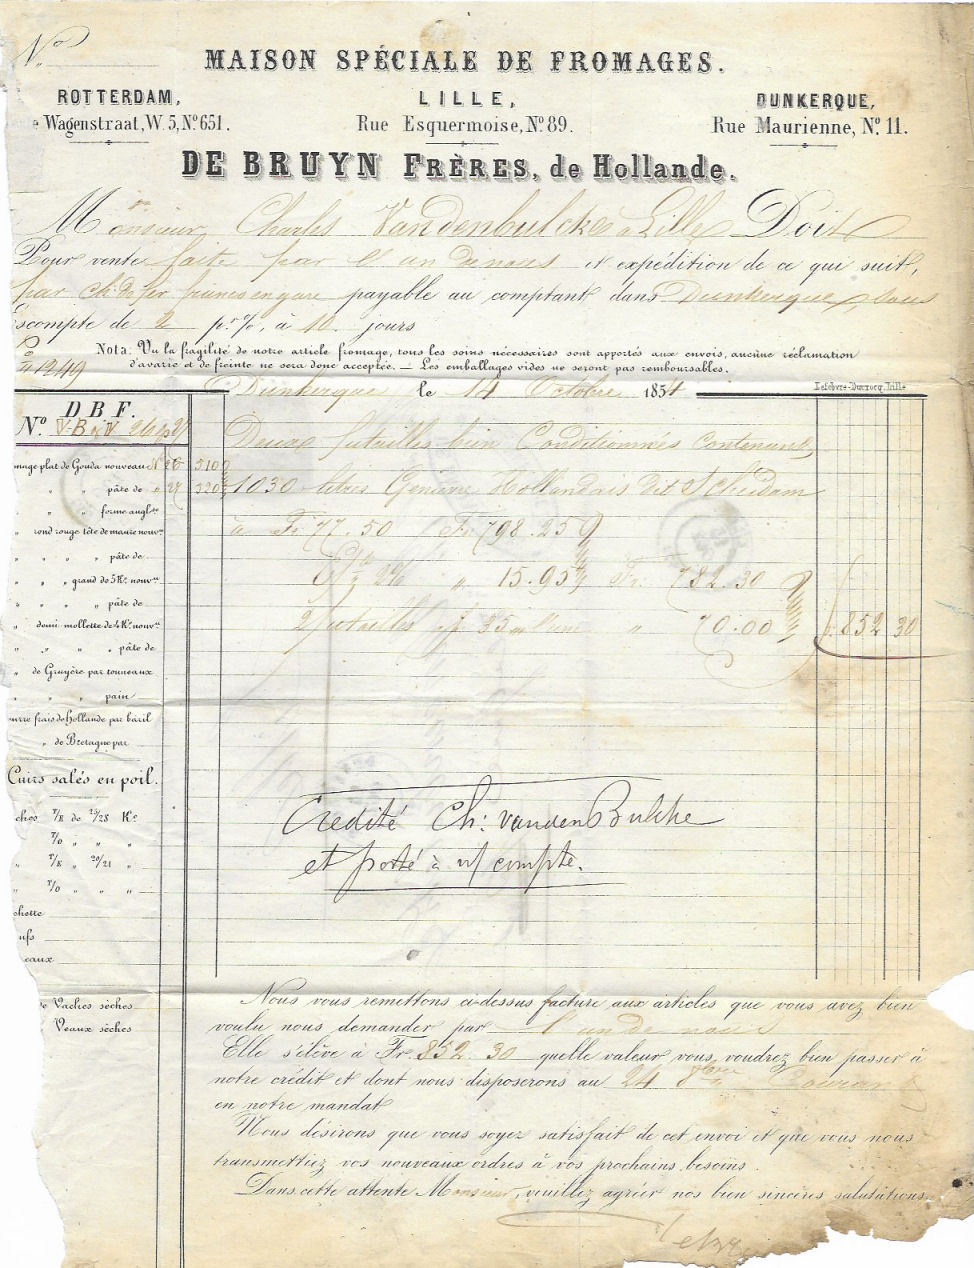 N°
MAISON SPÉCIALE DE FROMAGES.
ROTTERDAM,
e Wagenstraat, W. 5, N° 651.
LILLE,
Rue Esquermoise, N° 89.
DUNKERQUE,
Rue Maurienne, N° 11.
DE BRUYN FRÈRES, de Hollande.
Monsieur Charles Vandenbulcke à Lille Doit
Pour vente faite par l'un de nous et expédition de ce qui suit,
par ch. de fer franco en gare payable au comptant dans Dunkerque, sous
escompte de 2 p.r %, à 10 jours
Nota: Vu la fragilité de notre article fromage, tous les soins nécessaires sont apportés aux envois, aucune réclamation
d'avarie et de freinte ne sera donc acceptée. — Les emballages vides ne seront pas remboursables.
1249
Dunkerque le 14 Octobre 1854
Lefebvre-Ducrocq, Lille
D B F.
N° V-B à V 26 & 27
Deux futailles bien Conditionnés Contenant
mage plat de Gouda nouveau N 26 510
" " pâte de " 27 520
1030 litres Genièvre Hollandais dit Schiedam
" " forme angl.se
" rond rouge tête de maure nouv.
à Fr 77.50 Fr 798.25
" " " " pâte de
" " " grand de 5 K.° nouv.
2% " 15.95 Fr: 782.30
" " " " pâte de
" demi mollette de 4 K.° nouv.
2 futailles à f 35 " 70.00 f. 852 30
" " " " pâte de
" de Gruyère par tonneaux
" " " pain
eurre frais de Hollande par baril
" de Bretagne par
Cuirs salés en poil.
ches T/E de 25/28 K.°
T/O " " "
" T/E " 20/21 "
" T/O " " "
chette
ufs
eaux
Credité Ch: vanden Bulcke
et porté à n/ compte.
e Vaches sèches
Veaux sèches
Nous vous remettons ci-dessus facture aux articles que vous avez bien
voulu nous demander par l'un de nous
Elle s'élève à Fr. 852.30 quelle valeur vous voudrez bien passer à
notre crédit et dont nous disposerons au 24 8bre Courant
en notre mandat
Nous désirons que vous soyez satisfait de cet envoi et que vous nous
transmettiez vos nouveaux ordres à vos prochains besoins.
Dans cette attente Monsieur, veuillez agréer nos bien sincères salutations.